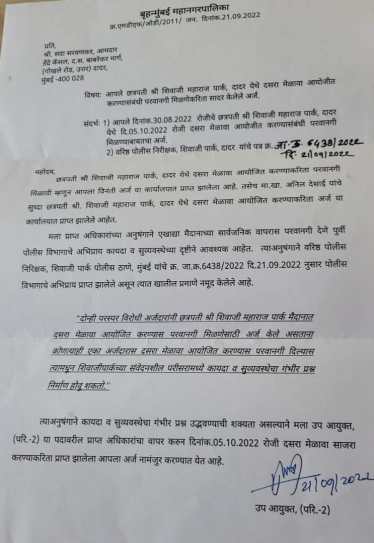 बृहन्मुंबई महानगरपालिका
दिनांक.21.09.2022
प्रति,
श्री. सदा सरवणकर, आमदार
(गोखले रोड, उत्तर) दादर,
मुंबई -400 028
विषयः आपले छत्रपती श्री शिवाजी महाराज पार्क, दादर येथे दसरा मेळावा आयोजीत
करण्यासंबंधी परवानगी मिळणेकरिता सादर केलेले अर्ज.
संदर्भः 1) आपले दिनांक.30.08.2022 रोजीचे छत्रपती श्री शिवाजी महाराज पार्क, दादर
येथे दि.05.10.2022 रोजी दसरा मेळावा आयोजित करण्यासंबंधी परवानगी
मिळण्याबाबतचा अर्ज.
2) वरिष्ठ पोलीस निरीक्षक, शिवाजी पार्क, दादर यांचे पत्र क्र. जा.क्र. 6438/2022
दि. 21/09/2022
महोदय,
छत्रपती श्री शिवाजी महाराज पार्क, दादर येथे दसरा मेळावा आयोजित करण्याकरिता परवानगी
मिळावी म्हणून आपला विनंती अर्ज या कार्यालयात प्राप्त झालेला आहे. तसेच मा.खा. अनिल देसाई यांचे
सुध्दा छत्रपती श्री. शिवाजी महाराज पार्क, दादर येथे दसरा मेळावा आयोजित करण्याकरिता अर्ज या
कार्यालयात प्राप्त झालेले आहेत.
मला प्राप्त अधिकाराच्या अनुषंगाने एखाद्या मैदानाच्या सार्वजनिक वापरास परवानगी देणे पुर्वी
पोलीस विभागाचे अभिप्राय कायदा व सुव्यवस्थेच्या दृष्टीने आवश्यक आहेत. त्याअनुषंगाने वरिष्ठ पोलीस
निरिक्षक, शिवाजी पार्क पोलीस ठाणे, मुंबई यांचे क्र. जा.क्र.6438/2022 दि.21.09.2022 नुसार पोलीस
विभागाचे अभिप्राय प्राप्त झालेले असून त्यात खालील प्रमाणे नमूद केलेले आहे.
"दोन्ही परस्पर विरोधी अर्जदारांनी छत्रपती श्री शिवाजी महाराज पार्क मैदानात
दसरा मेळावा आयोजित करण्यास परवानगी मिळणेसाठी अर्ज केले असताना
कोणत्याही एका अर्जदारास दसरा मेळावा आयोजित करण्यास परवानगी दिल्यास
त्यामधून शिवाजीपार्कच्या संवेदनशील परीसरामध्ये कायदा व सुव्यवस्थेचा गंभीर प्रश्न
निर्माण होवू शकतो."
त्याअनुषंगाने कायदा व सुव्यवस्थेचा गंभीर प्रश्न उद्भवण्याची शक्यता असल्याने मला उप आयुक्त,
(परि.-2) या पदावरील प्राप्त अधिकारांचा वापर करुन दिनांक.05.10.2022 रोजी दसरा मेळावा साजरा
करण्याकरिता प्राप्त झालेला आपला अर्ज नामंजुर करण्यात येत आहे.
21/09/2022
उप आयुक्त, (परि.-2)